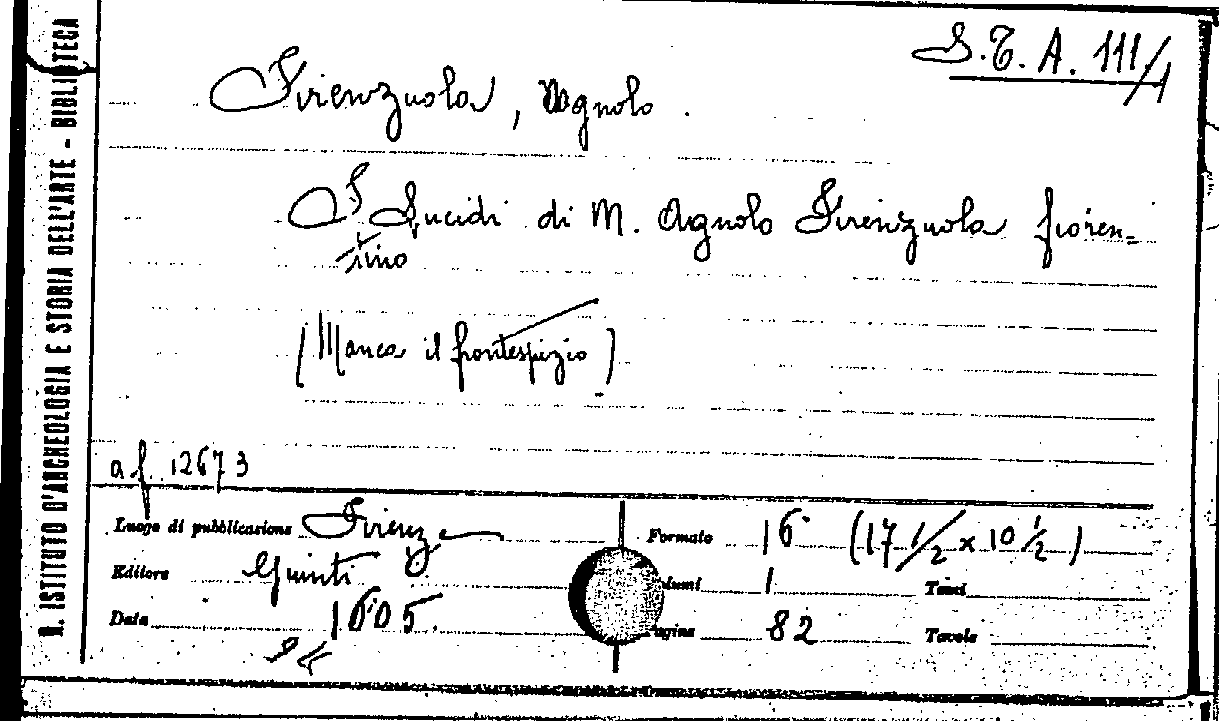 R. ISTITUTO D'ARCHEOLOGIA E STORIA DELL'ARTE - BIBLIOTECA
S.T.A. 111/1
Firenzuola, Agnolo.
I Lucidi di M. Agnolo Firenzuola fioren=
tino
(Manca il frontespizio)
a f. 12673
Luogo di pubblicazione Firenze
Formato 16° (17 1/2 x 10 1/2)
Editore Giunti
lumi 1 Tomi
Data 1605.
agine 82 Tavole